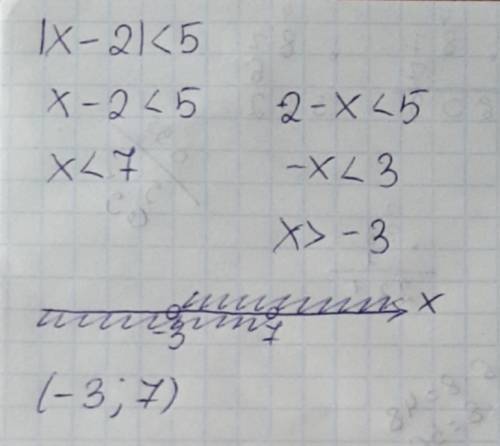 |x - 2| < 5
x - 2 < 5    2 - x < 5
x < 7    -x < 3
x > -3
-3    7    x
(-3; 7)